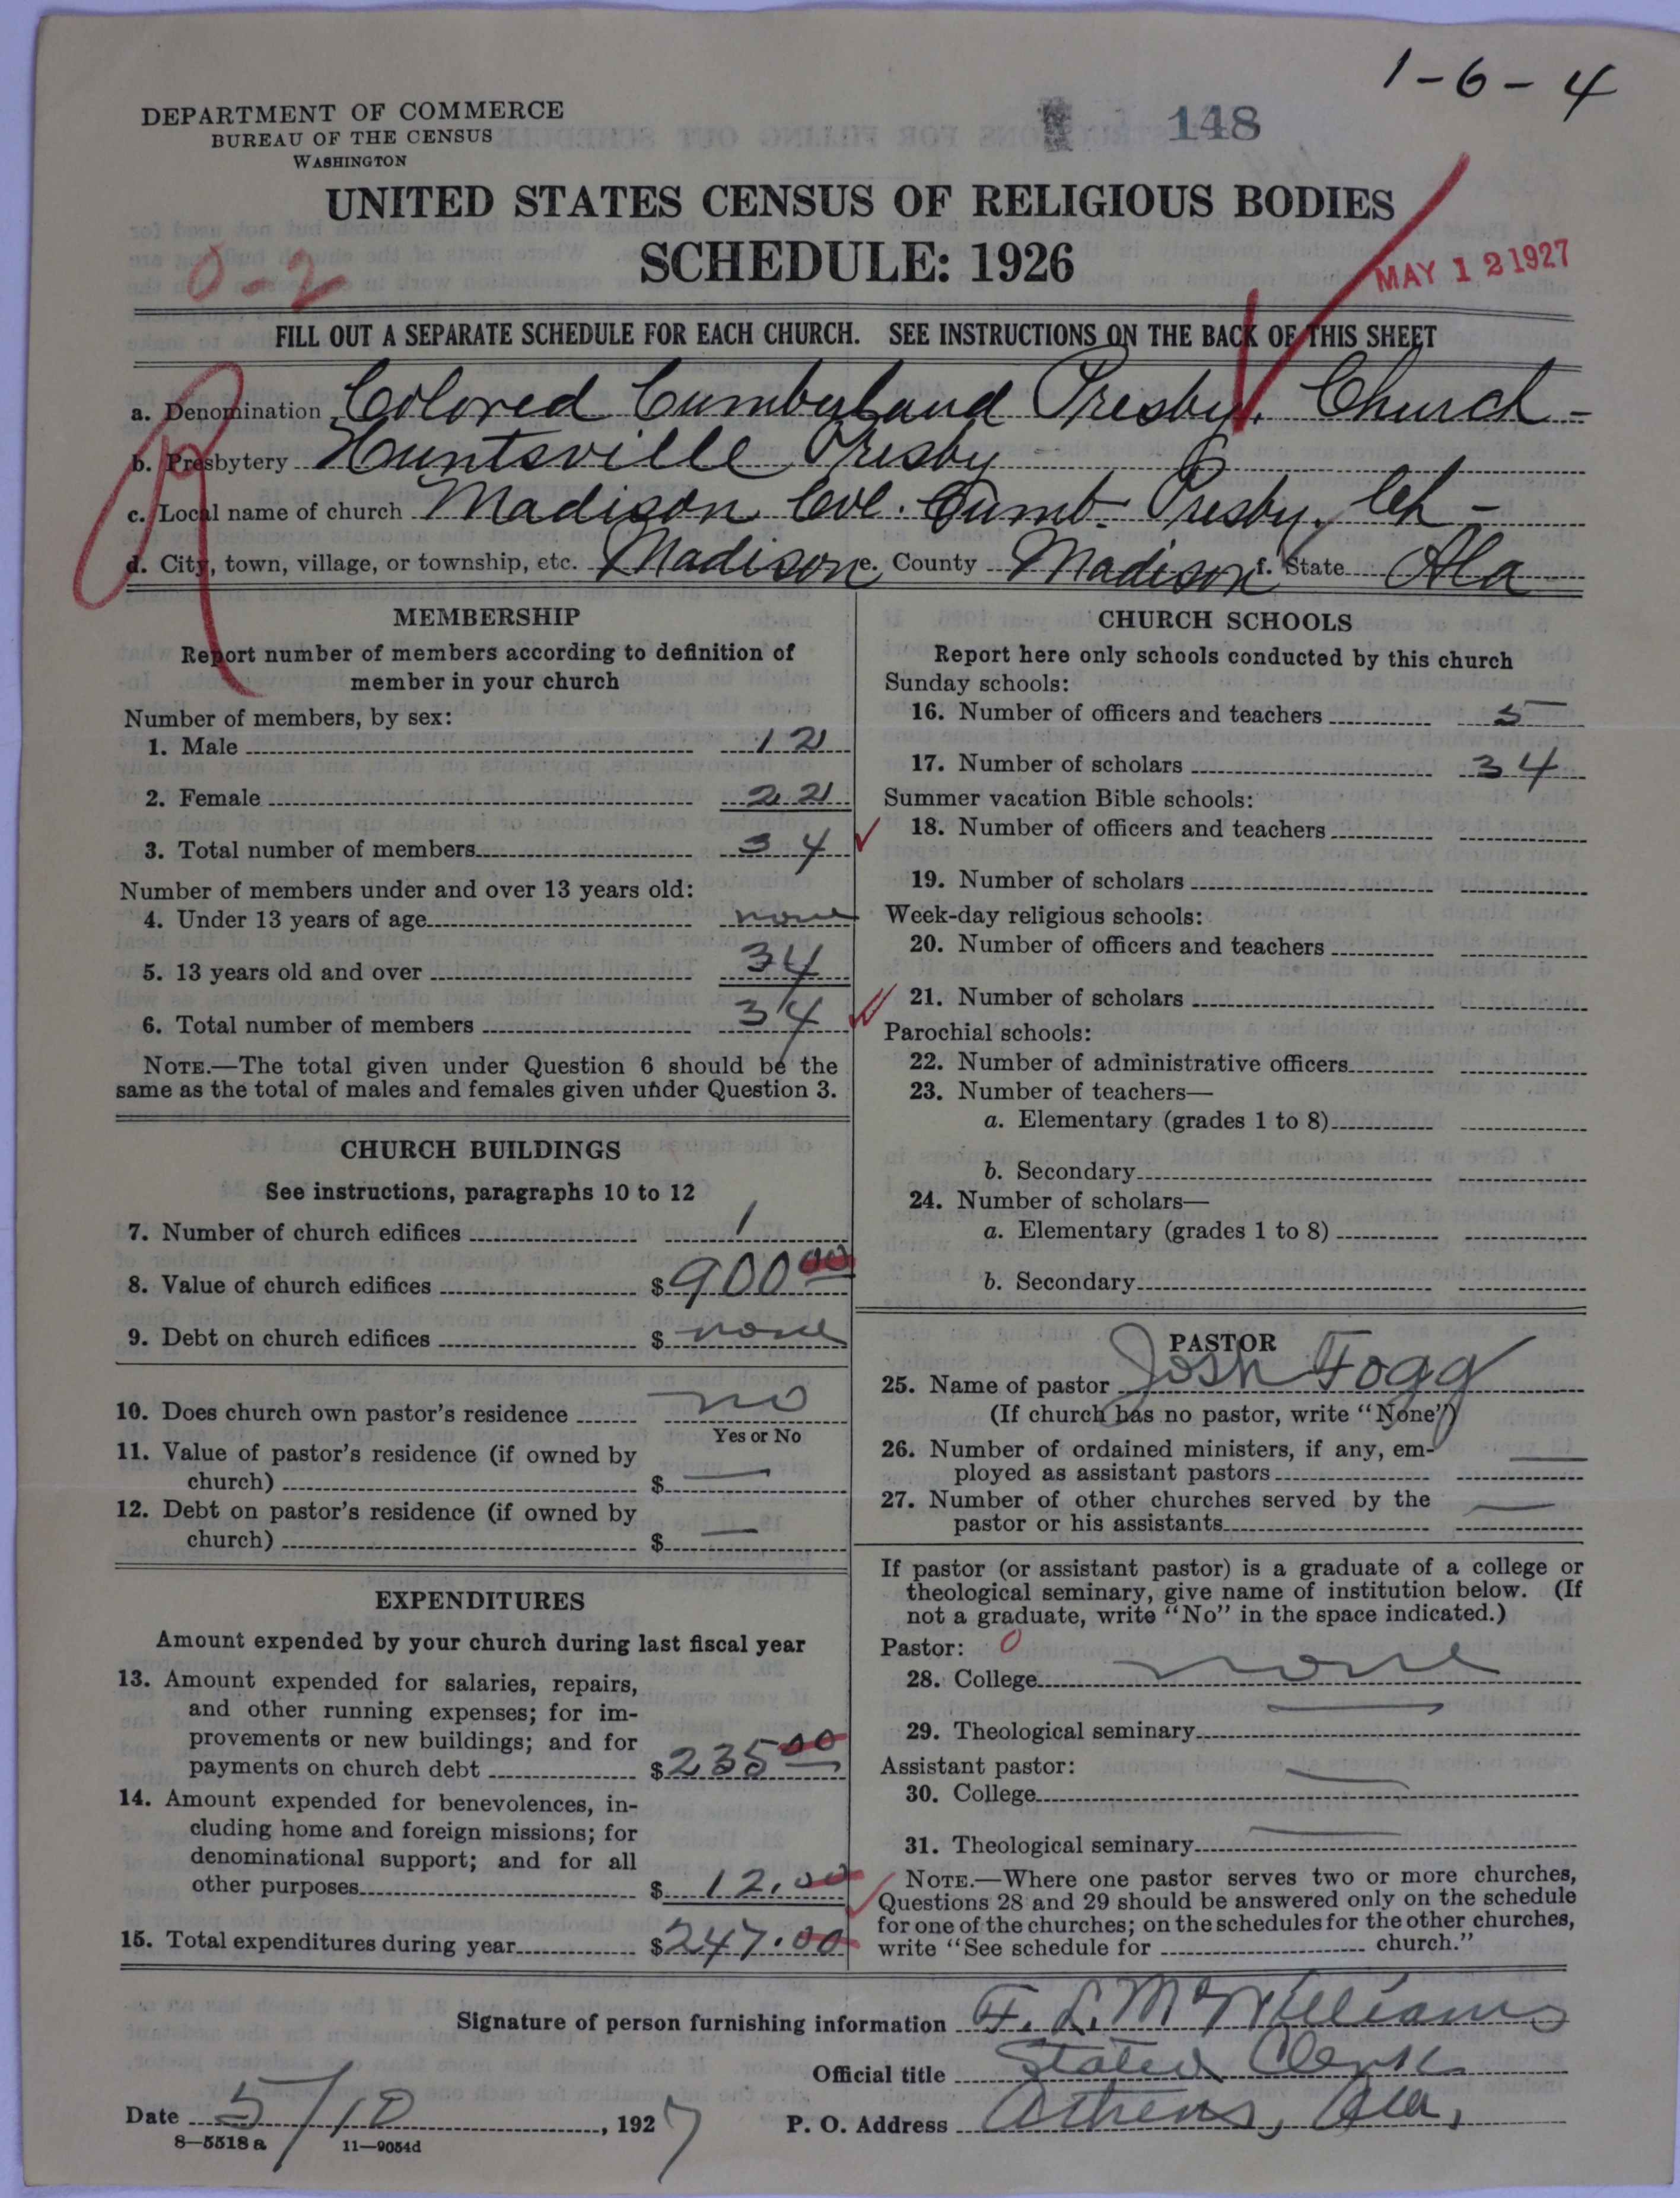 1-6-4
DEPARTMENT OF COMMERCE
BUREAU OF THE CENSUS
WASHINGTON
148
UNITED STATES CENSUS OF RELIGIOUS BODIES
SCHEDULE: 1926
MAY 12 1927
0-2
FILL OUT A SEPARATE SCHEDULE FOR EACH CHURCH. SEE INSTRUCTIONS ON THE BACK OF THIS SHEET
a. Denomination Colored Cumberland Presby. Church -
b. Presbytery Huntsville Presby
c. Local name of church Madison Col. Cumb. Presby. Ch -
d. City, town, village, or township, etc. Madison e. County Madison f. State Ala
MEMBERSHIP
Report number of members according to definition of
member in your church
Number of members, by sex:
1. Male 12
2. Female 22
3. Total number of members 34
Number of members under and over 13 years old:
4. Under 13 years of age none
5. 13 years old and over 34
6. Total number of members 34
NOTE.—The total given under Question 6 should be the
same as the total of males and females given under Question 3.
CHURCH BUILDINGS
See instructions, paragraphs 10 to 12
7. Number of church edifices 1
8. Value of church edifices $900.00
9. Debt on church edifices $ none
10. Does church own pastor's residence no
Yes or No
11. Value of pastor's residence (if owned by
church) $ —
12. Debt on pastor's residence (if owned by
church) $ —
EXPENDITURES
Amount expended by your church during last fiscal year
13. Amount expended for salaries, repairs,
and other running expenses; for im-
provements or new buildings; and for
payments on church debt $235 00
14. Amount expended for benevolences, in-
cluding home and foreign missions; for
denominational support; and for all
other purposes $ 12.00
15. Total expenditures during year $247.00
CHURCH SCHOOLS
Report here only schools conducted by this church
Sunday schools:
16. Number of officers and teachers 5
17. Number of scholars 34
Summer vacation Bible schools:
18. Number of officers and teachers
19. Number of scholars
Week-day religious schools:
20. Number of officers and teachers
21. Number of scholars
Parochial schools:
22. Number of administrative officers
23. Number of teachers—
a. Elementary (grades 1 to 8)
b. Secondary
24. Number of scholars—
a. Elementary (grades 1 to 8)
b. Secondary
PASTOR
25. Name of pastor Josh Fogg
(If church has no pastor, write "None")
26. Number of ordained ministers, if any, em-
ployed as assistant pastors —
27. Number of other churches served by the
pastor or his assistants —
If pastor (or assistant pastor) is a graduate of a college or
theological seminary, give name of institution below. (If
not a graduate, write "No" in the space indicated.)
Pastor: 0
28. College none
29. Theological seminary —
Assistant pastor:
30. College —
31. Theological seminary —
NOTE.—Where one pastor serves two or more churches,
Questions 28 and 29 should be answered only on the schedule
for one of the churches; on the schedules for the other churches,
write "See schedule for church."
Signature of person furnishing information F. L. McWilliams
Official title Stated Clerk
Date 5/10, 1927 P. O. Address Athens, Ala,
8—5518a 11—9054d